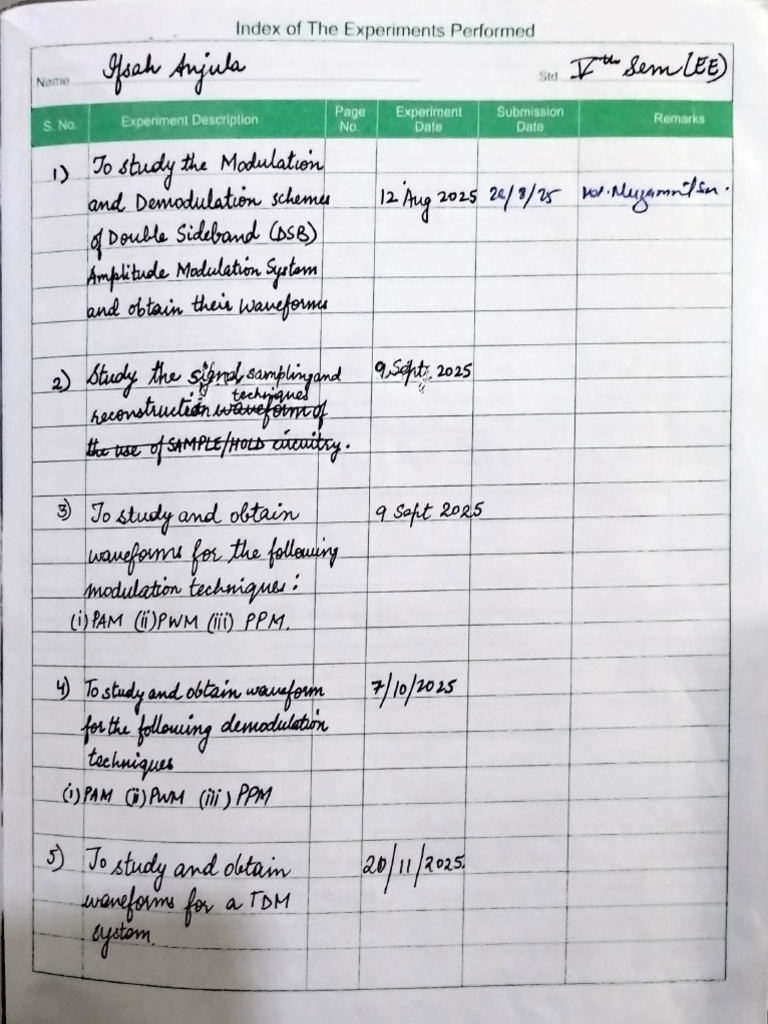 Index of The Experiments Performed
Name Ifsah Anjula Std Vth Sem (EE)
S. No. Experiment Description Page No. Experiment Date Submission Date Remarks
1) To study the Modulation
and Demodulation schemes 12 Aug 2025 /8/25
of Double Sideband (DSB)
Amplitude Modulation System
and obtain their waveforms
2) Study the signal sampling and 9 Sept. 2025
techniques
reconstruction waveform of
the use of SAMPLE/HOLD circuitry.
3) To study and obtain 9 Sept 2025
waveforms for the following
modulation techniques:
(i) PAM (ii) PWM (iii) PPM.
4) To study and obtain waveform 7/10/2025
for the following demodulation
techniques
(i) PAM (ii) PWM (iii) PPM
5) To study and obtain 20/11/2025.
waveforms for a TDM
system.